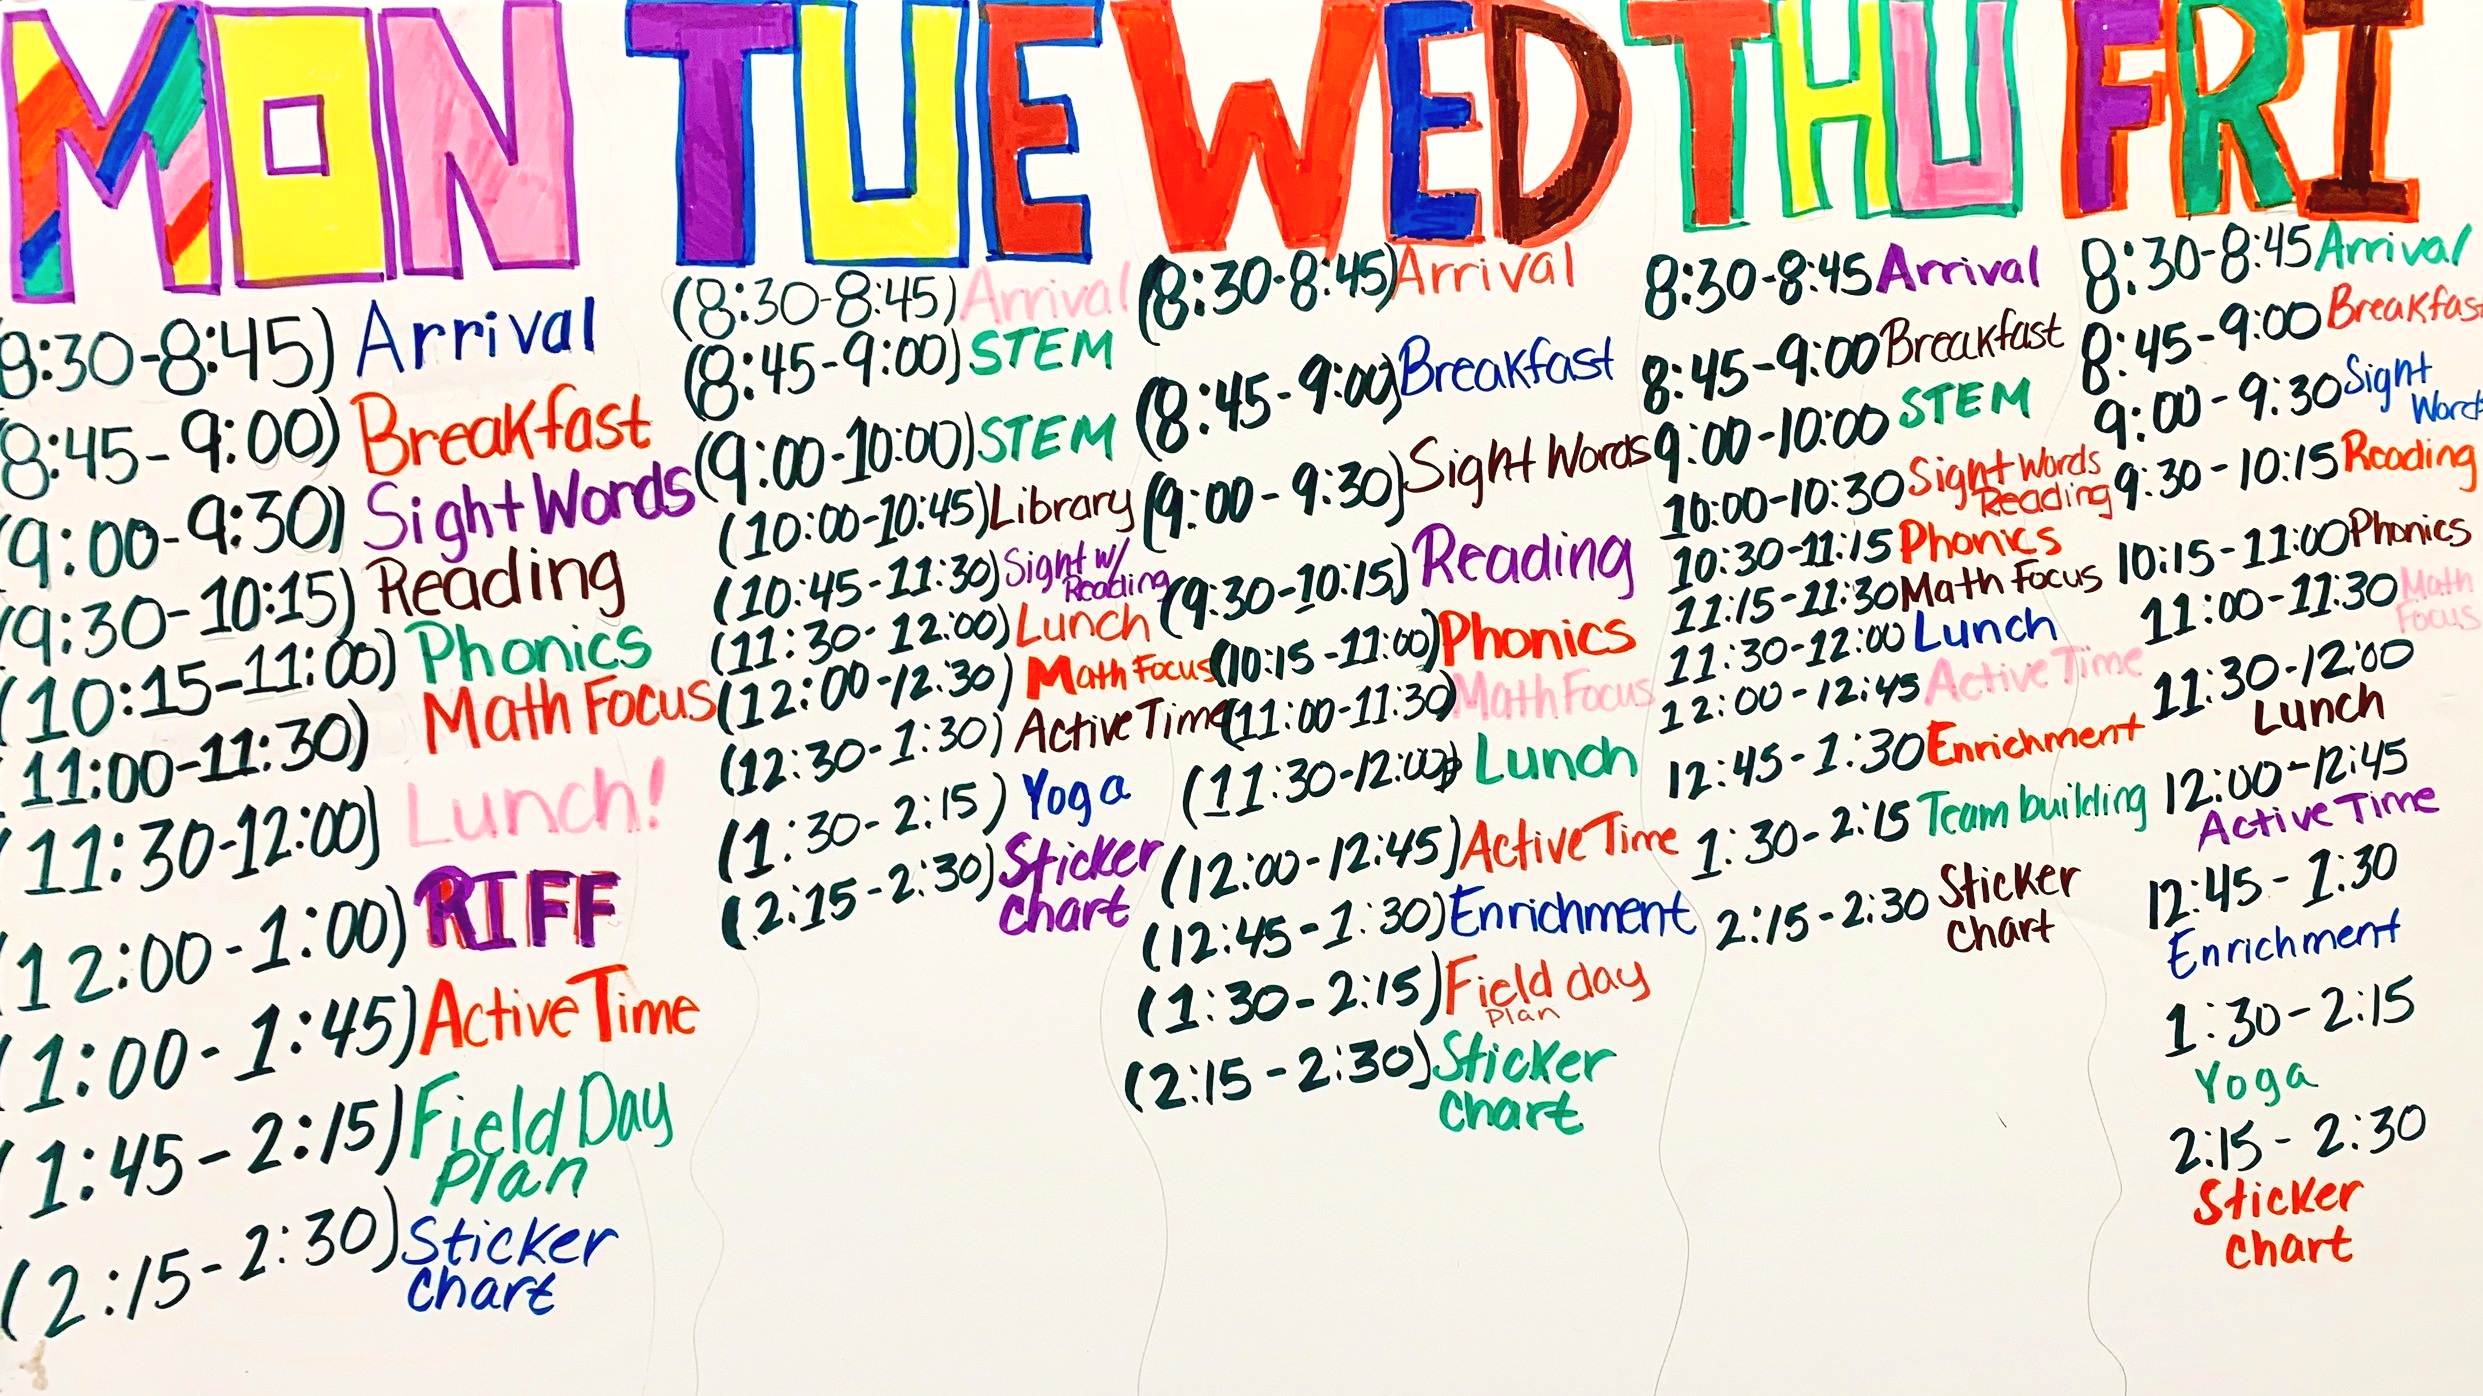 MON
(8:30-8:45) Arrival
(8:45-9:00) Breakfast
(9:00-9:30) Sight Words
(9:30-10:15) Reading
(10:15-11:00) Phonics
(11:00-11:30) Math Focus
(11:30-12:00) Lunch!
(12:00-1:00) RIFF
(1:00-1:45) Active Time
(1:45-2:15) Field Day
Plan
(2:15-2:30) Sticker
Chart
TUE
(8:30-8:45) Arrival
(8:45-9:00) STEM
(9:00-10:00) STEM
(10:00-10:45) Library
(10:45-11:30) Sight w/
Reading
(11:30-12:00) Lunch
(12:00-12:30) Math Focus
(12:30-1:30) Active Time
(1:30-2:15) Yoga
(2:15-2:30) Sticker
Chart
WED
(8:30-8:45) Arrival
(8:45-9:00) Breakfast
(9:00-9:30) Sight Words
(9:30-10:15) Reading
(10:15-11:00) Phonics
(11:00-11:30) Math Focus
(11:30-12:00) Lunch
(12:00-12:45) Active Time
(12:45-1:30) Enrichment
(1:30-2:15) Field day
Plan
(2:15-2:30) Sticker
Chart
THU
8:30-8:45 Arrival
8:45-9:00 Breakfast
9:00-10:00 STEM
10:00-10:30 Sight Words
Reading
10:30-11:15 Phonics
11:15-11:30 Math Focus
11:30-12:00 Lunch
12:00-12:45 Active Time
12:45-1:30 Enrichment
1:30-2:15 Team building
2:15-2:30 Sticker
Chart
FRI
8:30-8:45 Arrival
8:45-9:00 Breakfast
9:00-9:30 Sight
Words
9:30-10:15 Reading
10:15-11:00 Phonics
11:00-11:30 Math
Focus
11:30-12:00
Lunch
12:00-12:45
Active Time
12:45-1:30
Enrichment
1:30-2:15
Yoga
2:15-2:30
Sticker
Chart